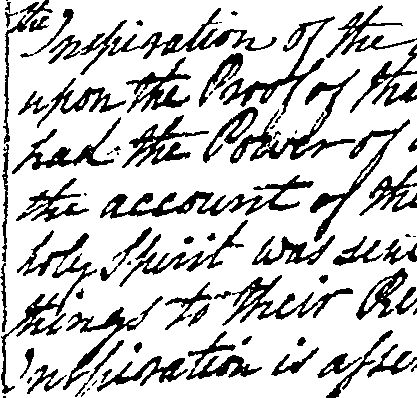 the Inspiration of the
upon the Proof of the
had the Power of
the account of the
holy Spirit was sent
things to their Re
Inspiration is asse